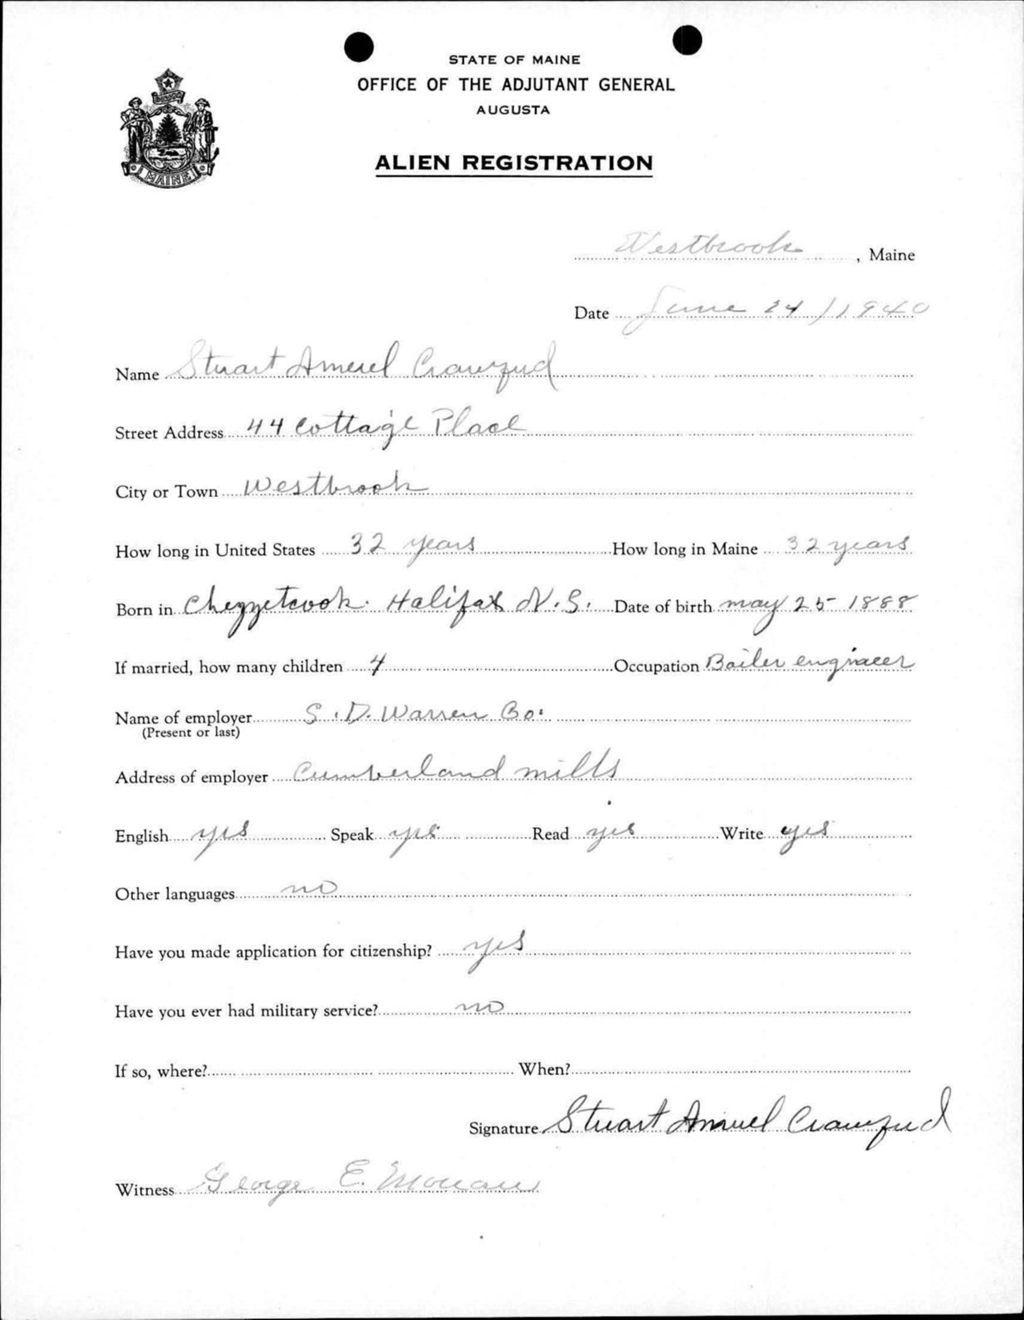 STATE OF MAINE
OFFICE OF THE ADJUTANT GENERAL
AUGUSTA
MAINE
ALIEN REGISTRATION
Westbrook, Maine
Date June 24/1940
Name Stuart Crawfud
Street Address 44 Cottage Place
City or Town Westbrook
How long in United States 32 years How long in Maine 32 years
Born in Chezzetcook. Halifax N.S. Date of birth may 25 1888
If married, how many children 4 Occupation Boiler engineer
Name of employer S.D. Warren Co.
(Present or last)
Address of employer Cumberland mills
English yes Speak yes Read yes Write yes
Other languages no
Have you made application for citizenship? yes
Have you ever had military service? no
If so, where? When?
Signature Stuart Crawfud
Witness George E.